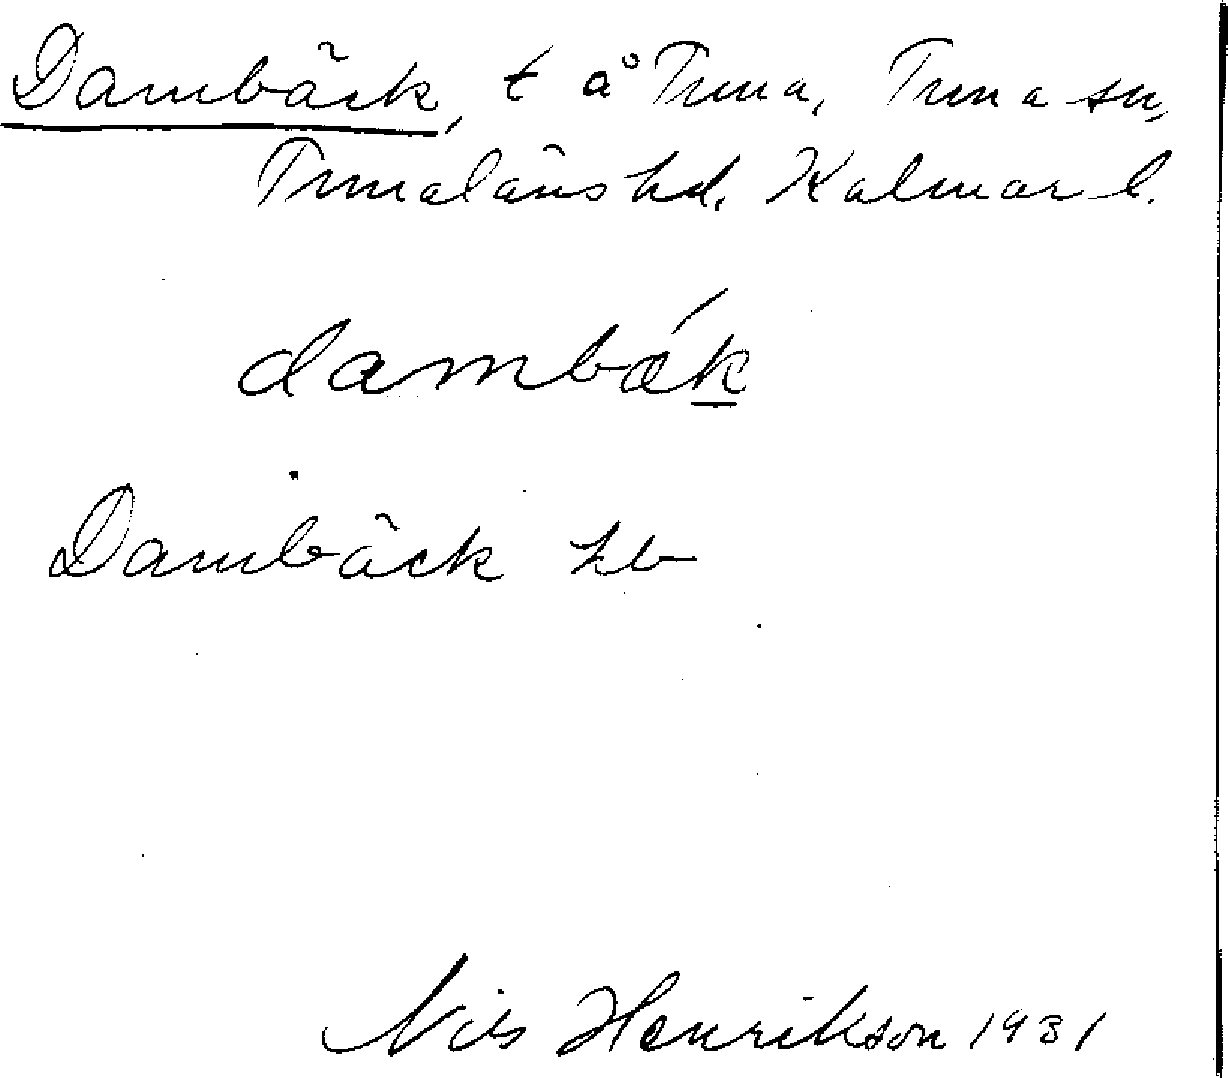 Dambäck, t å Tuna, Tuna sn,
Tunaläns hd. Kalmar l.
dambǽk
Dambäck hb
Nils Henrikson 1931